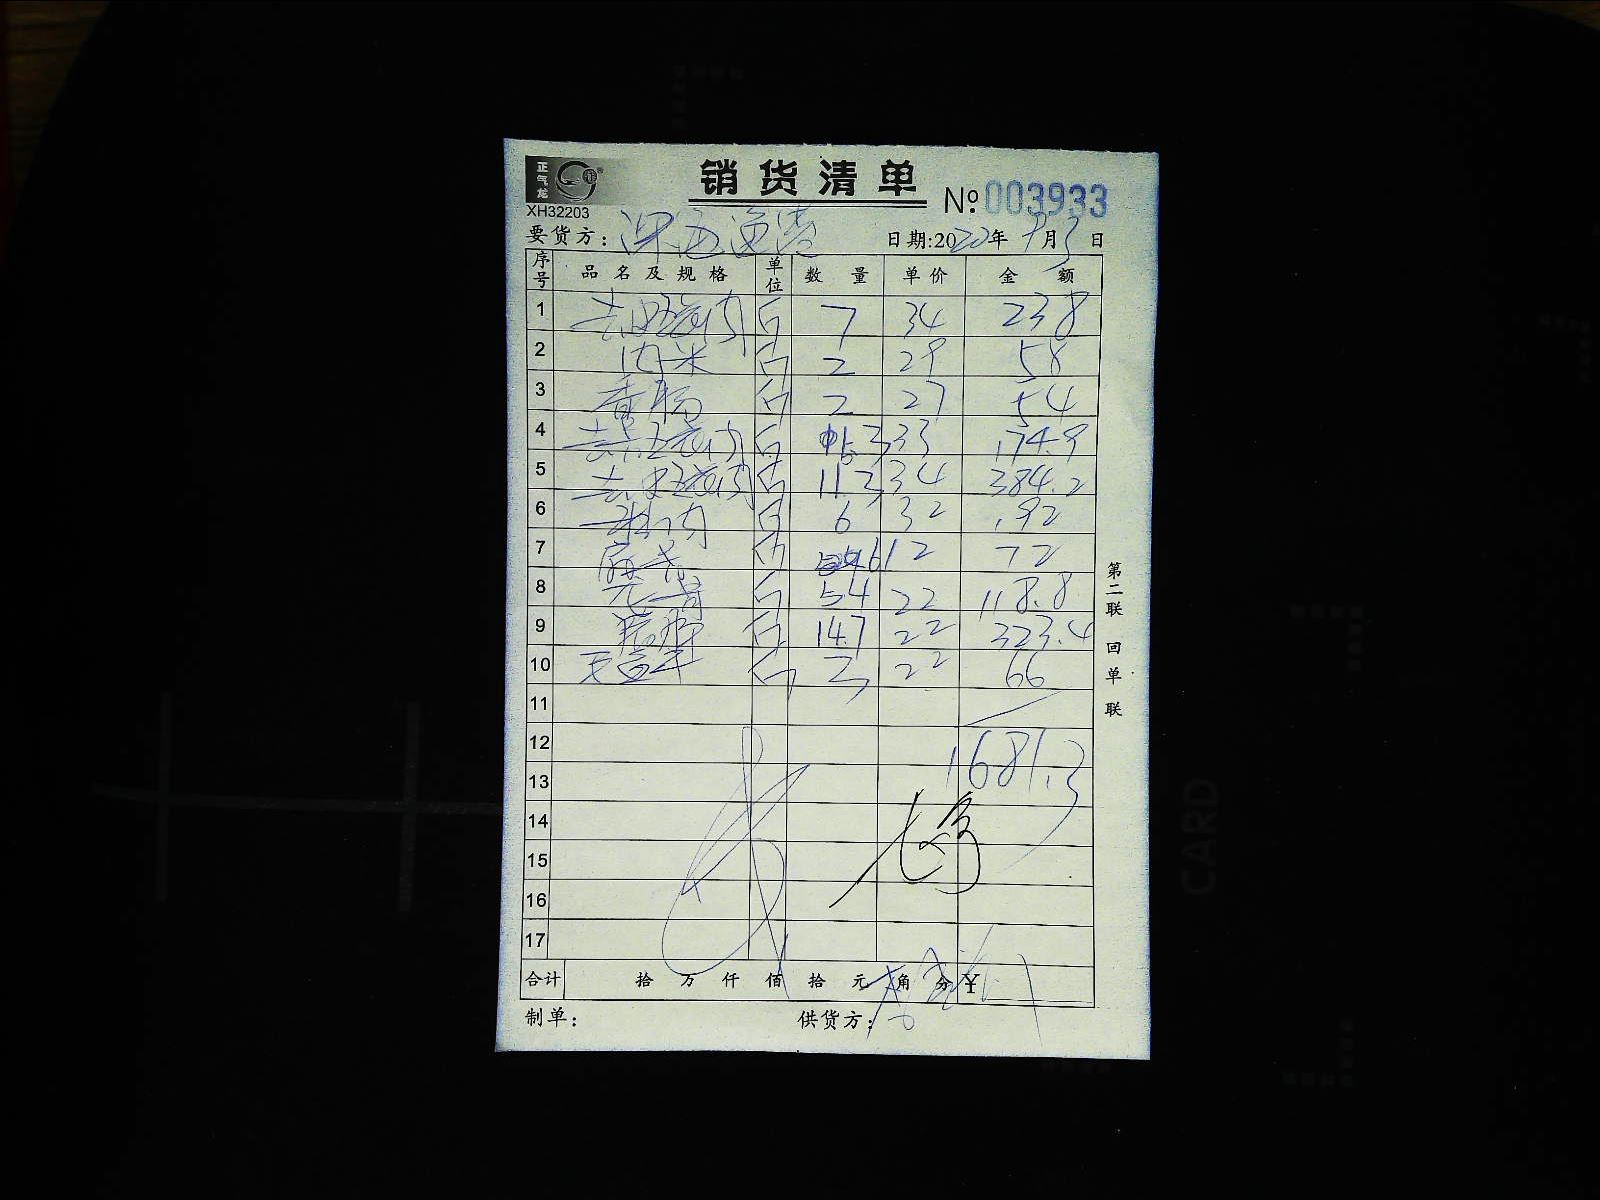 正气龙
销货清单
XH32203
№ 003933
要货方：深海渔港 日期:2020年9月3日
序号 品名及规格 单位 数量 单价 金额
1 去皮五花肉 斤 7 34 238
2 肉米 斤 2 29 58
3 香肠 斤 2 27 54
4 去皮五花肉 斤 5.3 33 174.9
5 去皮五花肉 斤 11.3 34 384.2
6 肉 斤 6 32 192
7 斤 6 12 72
8 斤 5.4 22 118.8
9 斤 14.7 22 323.4
10 斤 3 22 66
11
12 1681.3
13
14
15
16
17
合计 拾 万 仟 佰 拾 元 角 分 ￥
制单： 供货方：
第二联 回单联
CARD